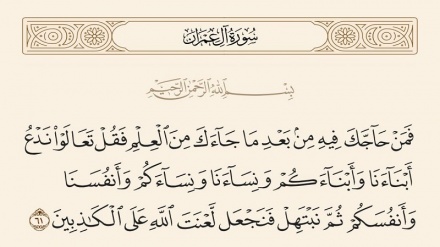 سُورَةُ آلِ عِمْرَانَ
بِسْمِ اللَّهِ الرَّحْمَٰنِ الرَّحِيمِ
فَمَنْ حَآجَّكَ فِيهِ مِنۢ بَعْدِ مَا جَآءَكَ مِنَ ٱلْعِلْمِ فَقُلْ تَعَالَوْا۟ نَدْعُ
أَبْنَآءَنَا وَأَبْنَآءَكُمْ وَنِسَآءَنَا وَنِسَآءَكُمْ وَأَنفُسَنَا
وَأَنفُسَكُمْ ثُمَّ نَبْتَهِلْ فَنَجْعَل لَّعْنَتَ ٱللَّهِ عَلَى ٱلْكَٰذِبِينَ ٦١